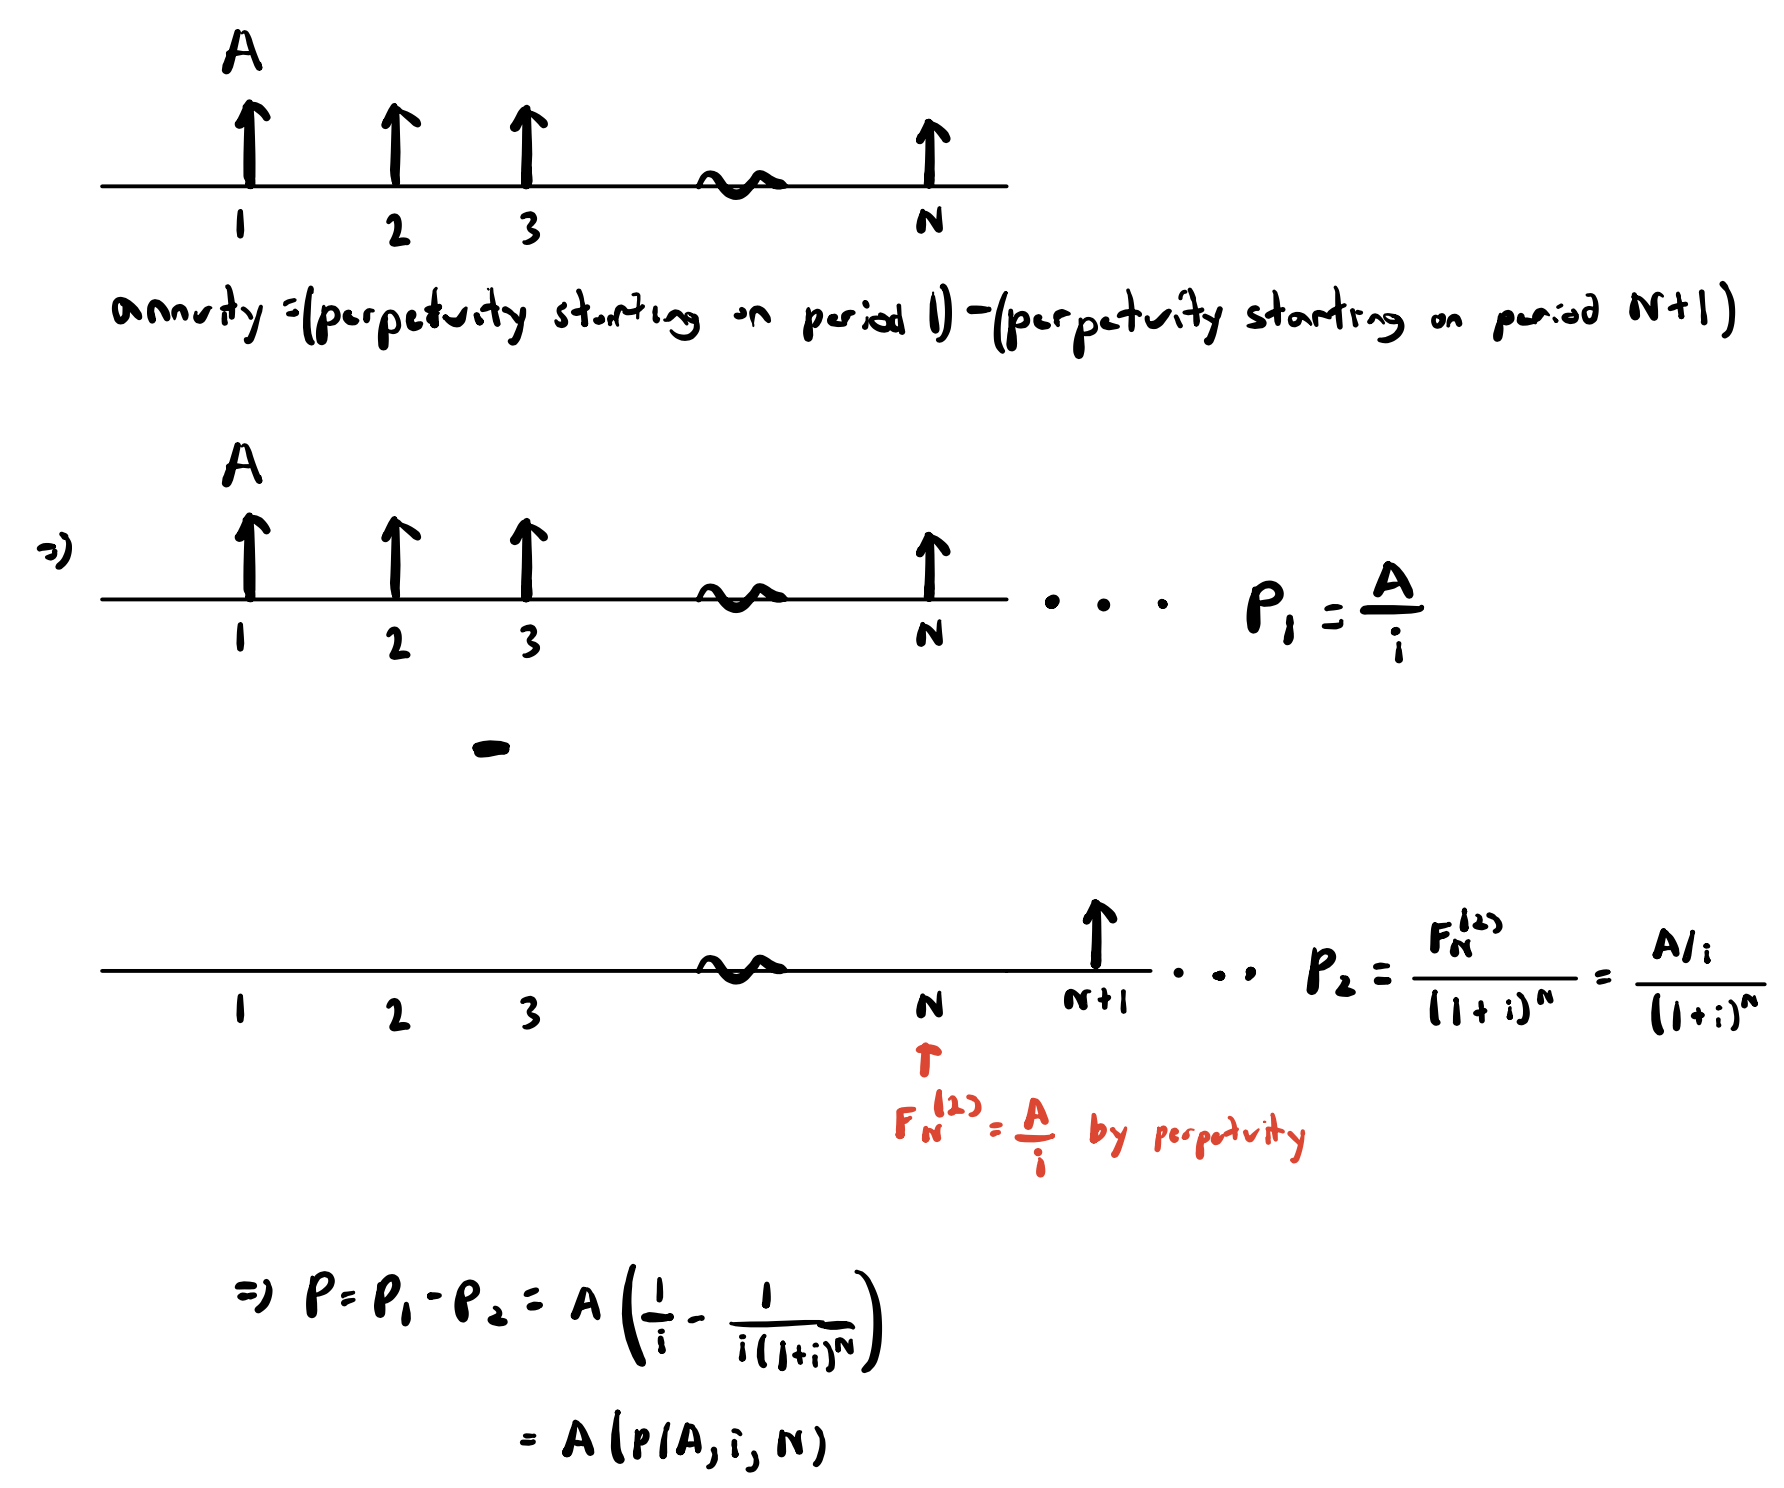 A
1 2 3 N
annuity = (perpetuity starting on period 1) - (perpetuity starting on period N+1)
A
=> 1 2 3 N . . . P₁ = A/i
-
1 2 3 N N+1 . . . P₂ = F_N^(2)/(1+i)^N = (A/i)/(1+i)^N
↑
F_N^(2) = A/i by perpetuity
=> P = P₁ - P₂ = A(1/i - 1/(i(1+i)^N))
= A(P/A, i, N)